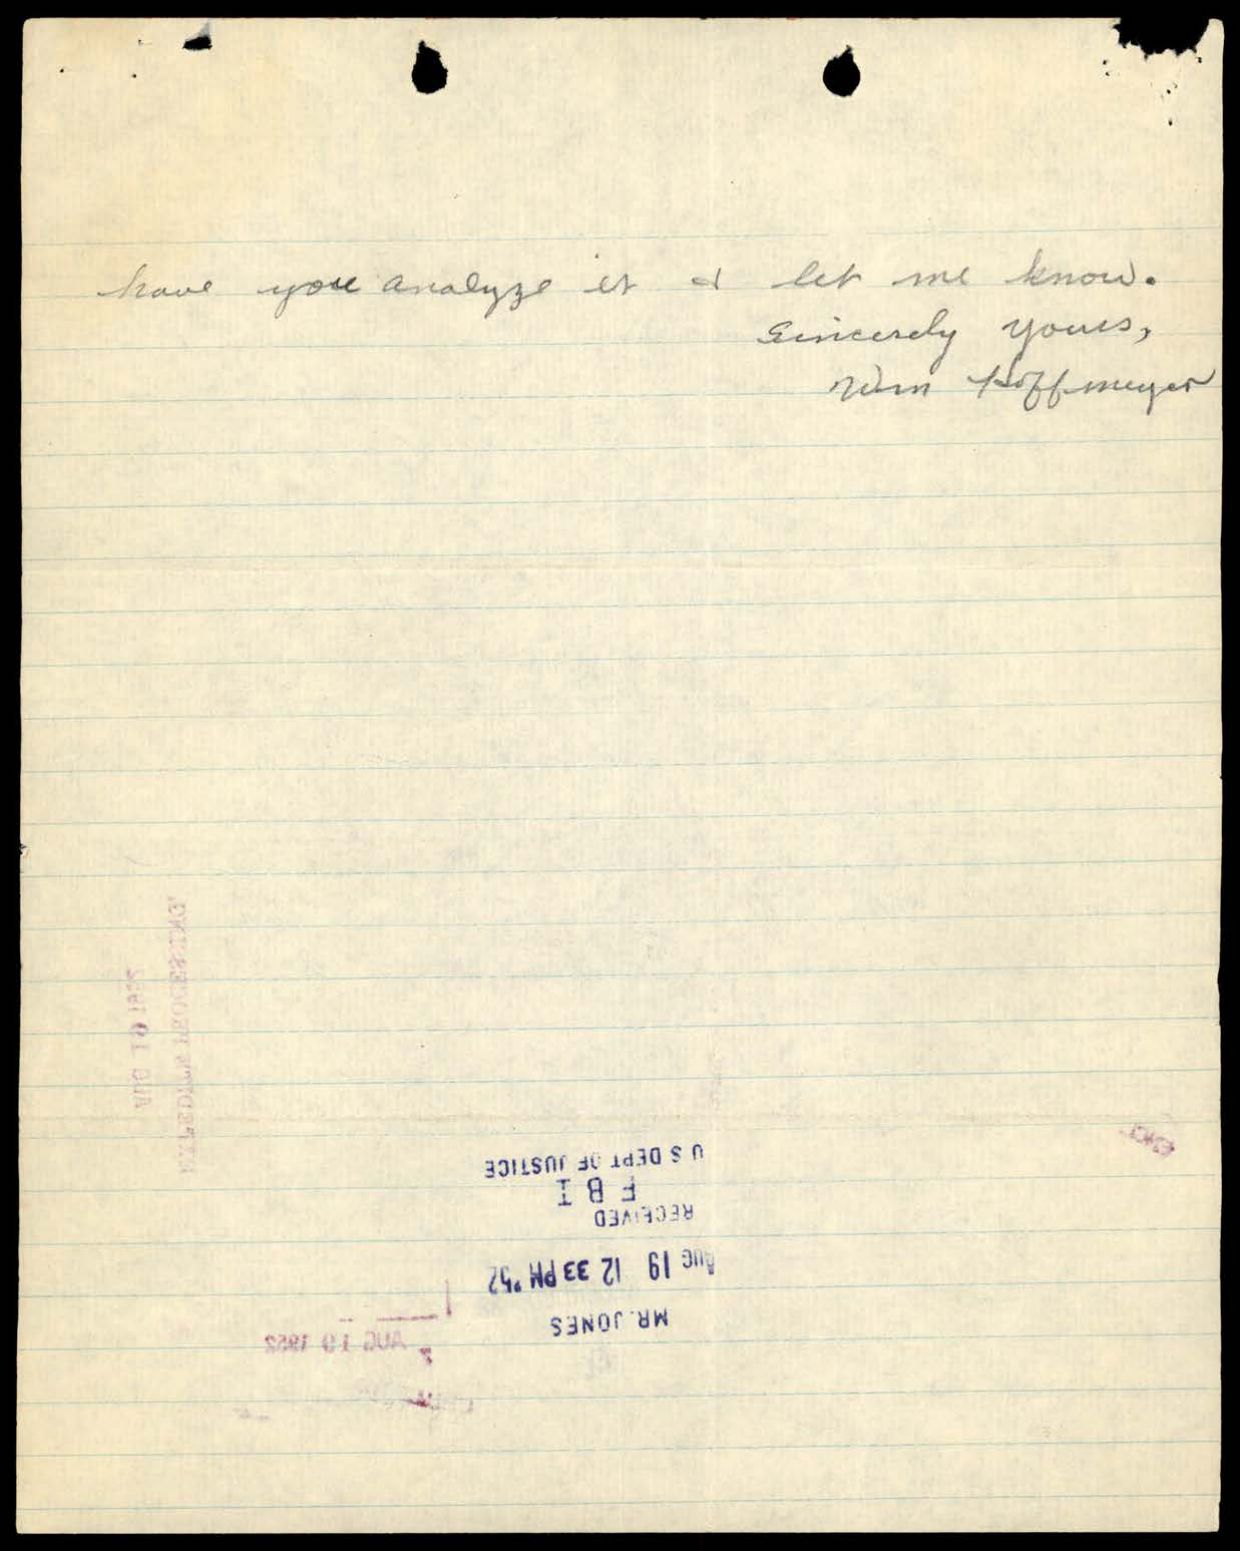 have you analyze it & let me know.
Sincerely yours,
Wm Hoffmeyer
EXPEDITE PROCESSING
AUG 19 1952
MR. JONES
AUG 19 12 33 PM '52
RECEIVED
F B I
U S DEPT OF JUSTICE
AUG 19 1952